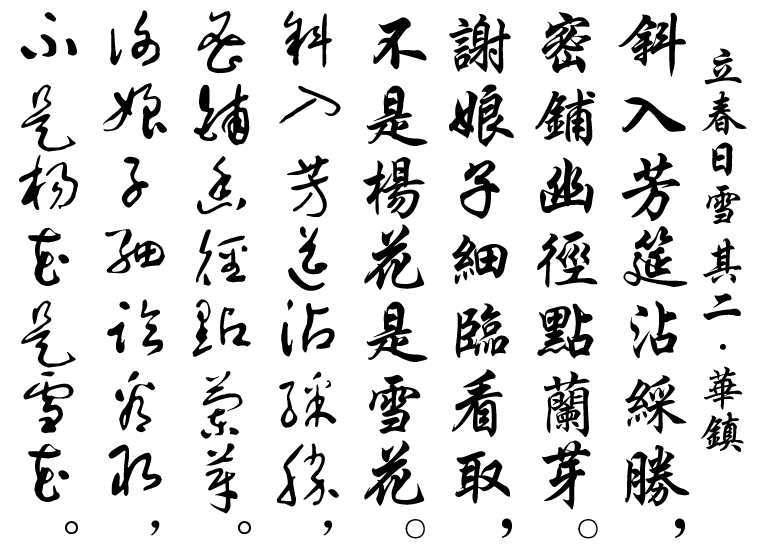 立春日雪 其二·華鎮
斜入芳筵沾綵勝，
密鋪幽徑點蘭芽。
謝娘子細臨看取，
不是楊花是雪花。
斜入芳筵沾綵勝，
密鋪幽徑點蘭芽。
謝娘子細臨看取，
不是楊花是雪花。